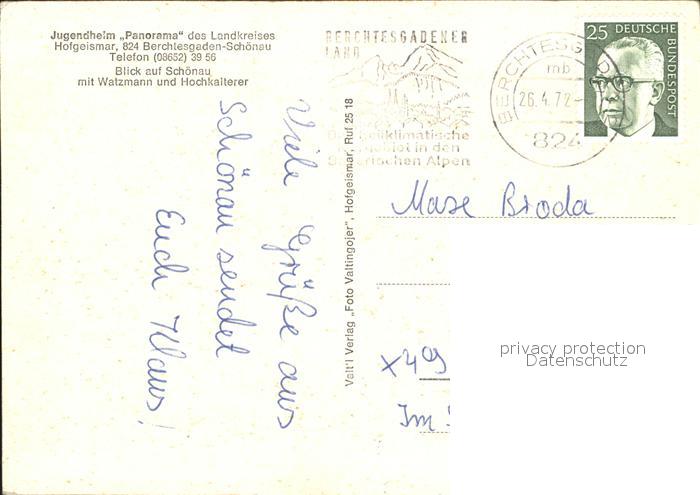 Jugendheim „Panorama" des Landkreises
Hofgeismar, 824 Berchtesgaden-Schönau
Telefon (08652) 39 56
Blick auf Schönau
mit Watzmann und Hochkalterer
BERCHTESGADENER
LAND
in den
Alpen
BERCHTESG
mb
26.4.72
824
25 DEUTSCHE
BUNDESPOST
Viele Grüße aus
Schönau sendet
Euch Klaus!
Valt'l Verlag „Foto Valtingojer", Hofgeismar, Ruf 25 18
Broda
x 49
Im
privacy protection
Datenschutz